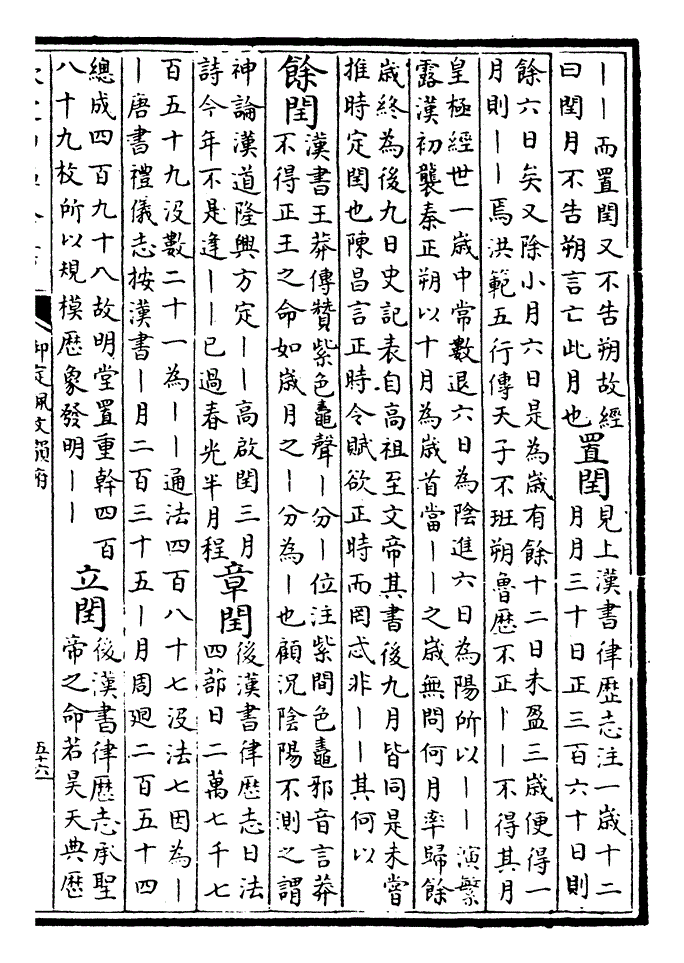 ｜｜而置閏又不告朔故經
曰閏月不告朔言亡此月也
置閏
見上漢書律歴志注一歳十二
月月三十日正三百六十日則
餘六日矣又除小月六日是為歳有餘十二日未盈三歳便得一
月則｜｜焉洪範五行傳天子不班朔魯歴不正｜｜不得其月
皇極經世一歳中常數退六日為陰進六日為陽所以｜｜演繁
露漢初襲秦正朔以十月為歳首當｜｜之歳無問何月率歸餘
歳終為後九日史記表自高祖至文帝其書後九月皆同是未嘗
推時定閏也陳昌言正時令賦欲正時而罔忒非｜｜其何以
餘閏
漢書王莽傳贊紫色鼃聲｜分｜位注紫間色鼃邪音言莽
不得正王之命如歳月之｜分為｜也顧況陰陽不測之謂
神論漢道隆興方定｜｜高啟閏三月
詩今年不是逢｜｜已過春光半月程
章閏
後漢書律歴志日法
四蔀日二萬七千七
百五十九没數二十一為｜｜通法四百八十七没法七因為｜
｜唐書禮儀志按漢書｜月二百三十五｜月周廻二百五十四
總成四百九十八故明堂置重幹四百
八十九枚所以規模歴象發明｜｜
立閏
後漢書律歴志承聖
帝之命若昊天典歴
御定佩文韻府
五十六